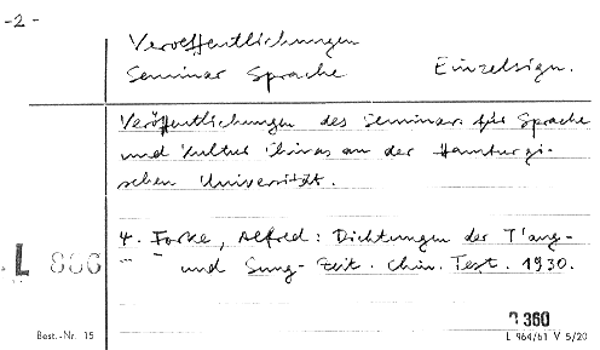 -2-
Veroeffentlichungen
Seminar Sprache Einzelsign.
Veröffentlichungen des Seminars für Sprache
und Kultur Chinas an der Hamburgi-
schen Universität.
4. Forke, Alfred: Dichtungen der T'ang-
" " - und Sung-Zeit. Chin. Text. 1930.
L 866
360
Best.-Nr. 15 L 964/61 V 5/20